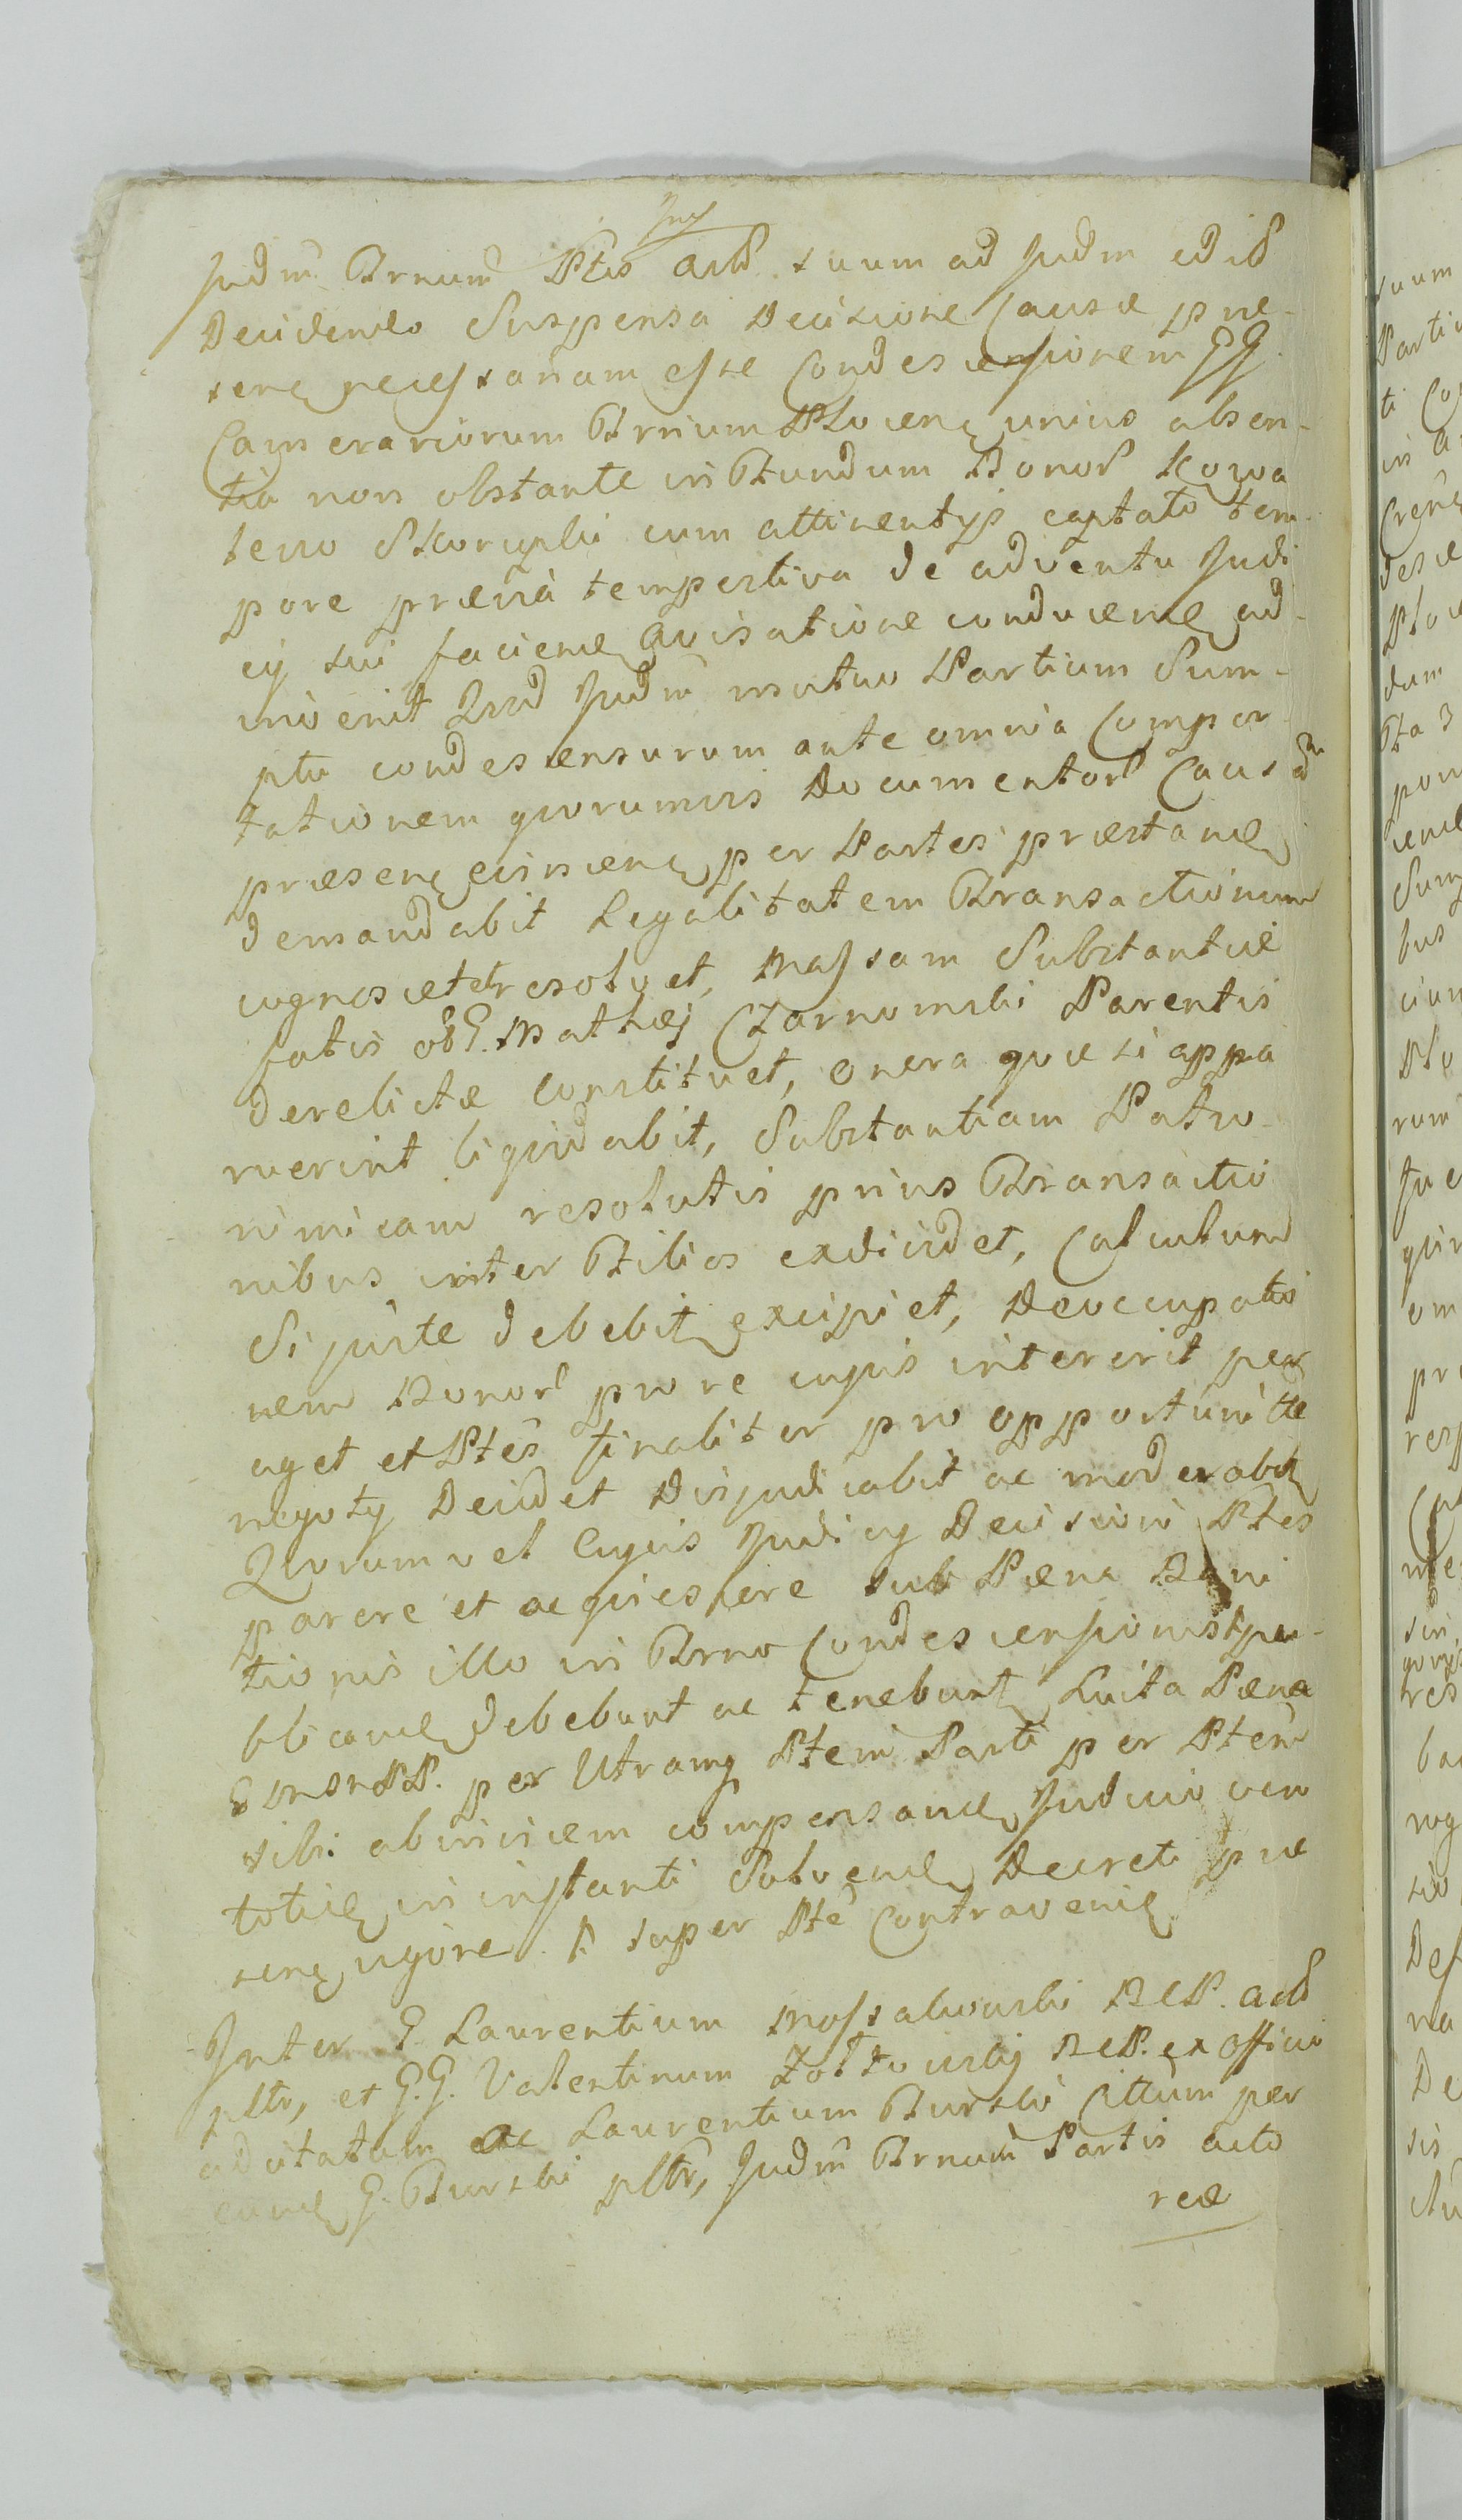 Judm Trnum Ptis actd suum ad Judm edid
Decidendo Suspensa Decisione Causæ præ-
senę necessariam esse Condescensionem GG
Camerariorum Trnium Plocenę unius absen-
tia non obstante in Fundum Bonor Kowa
lewo Skorupki cum attinentijs captato tem
pore prævia tempestiva de adventu Judi
cij sui faciend avisatione conducend ad-
invenit Quod Judm mutuo Partium Sum-
ptu condescensurum ante omnia Compor
tationem quorumvis Documentor Causam
præsenę cinscenę per Partes præstand
demandabit Legalitatem Transactionum
cognoscet et resolvet, Massam Substantiæ
fatis ol G. Mathæj Czarnomski Parentis
derelictæ constituet, onera quæ si appa
ruerint liquidabit, Substantiam Patro
nimicam resolutis prius Transactio
nibus inter Filios exdividet, Calculum
Si juste debebit excipiet, Deoccupatio
nem Bonor pro re cujus intererit per
aget et Ptes finaliter pro opportunitte
negotij Decidet Disjudicabit ac moderabit
Quorum vel Cujus Judicij Decisioni Ptes
parere et acquiescere sub Pæna Bani
tionis illo in Trno Condescensionis pu-
blicand debebunt ac tenebunt Luita Pæna
per Utramq Ptem Parti per Ptem
sibi abinvicem compensand Judicio vero
totid in instanti Solvend Decreti præ
senę vigore super Pte Contravenid
Inter G Laurentium Massalwurski REP. actd
pltr, et G.G. Valentinum Zołtowskij REP. ex officio
ad citatum ac Laurentium Burski Cittum per
eund G. Burski pltr, Judm Trnum Partis acto
reæ